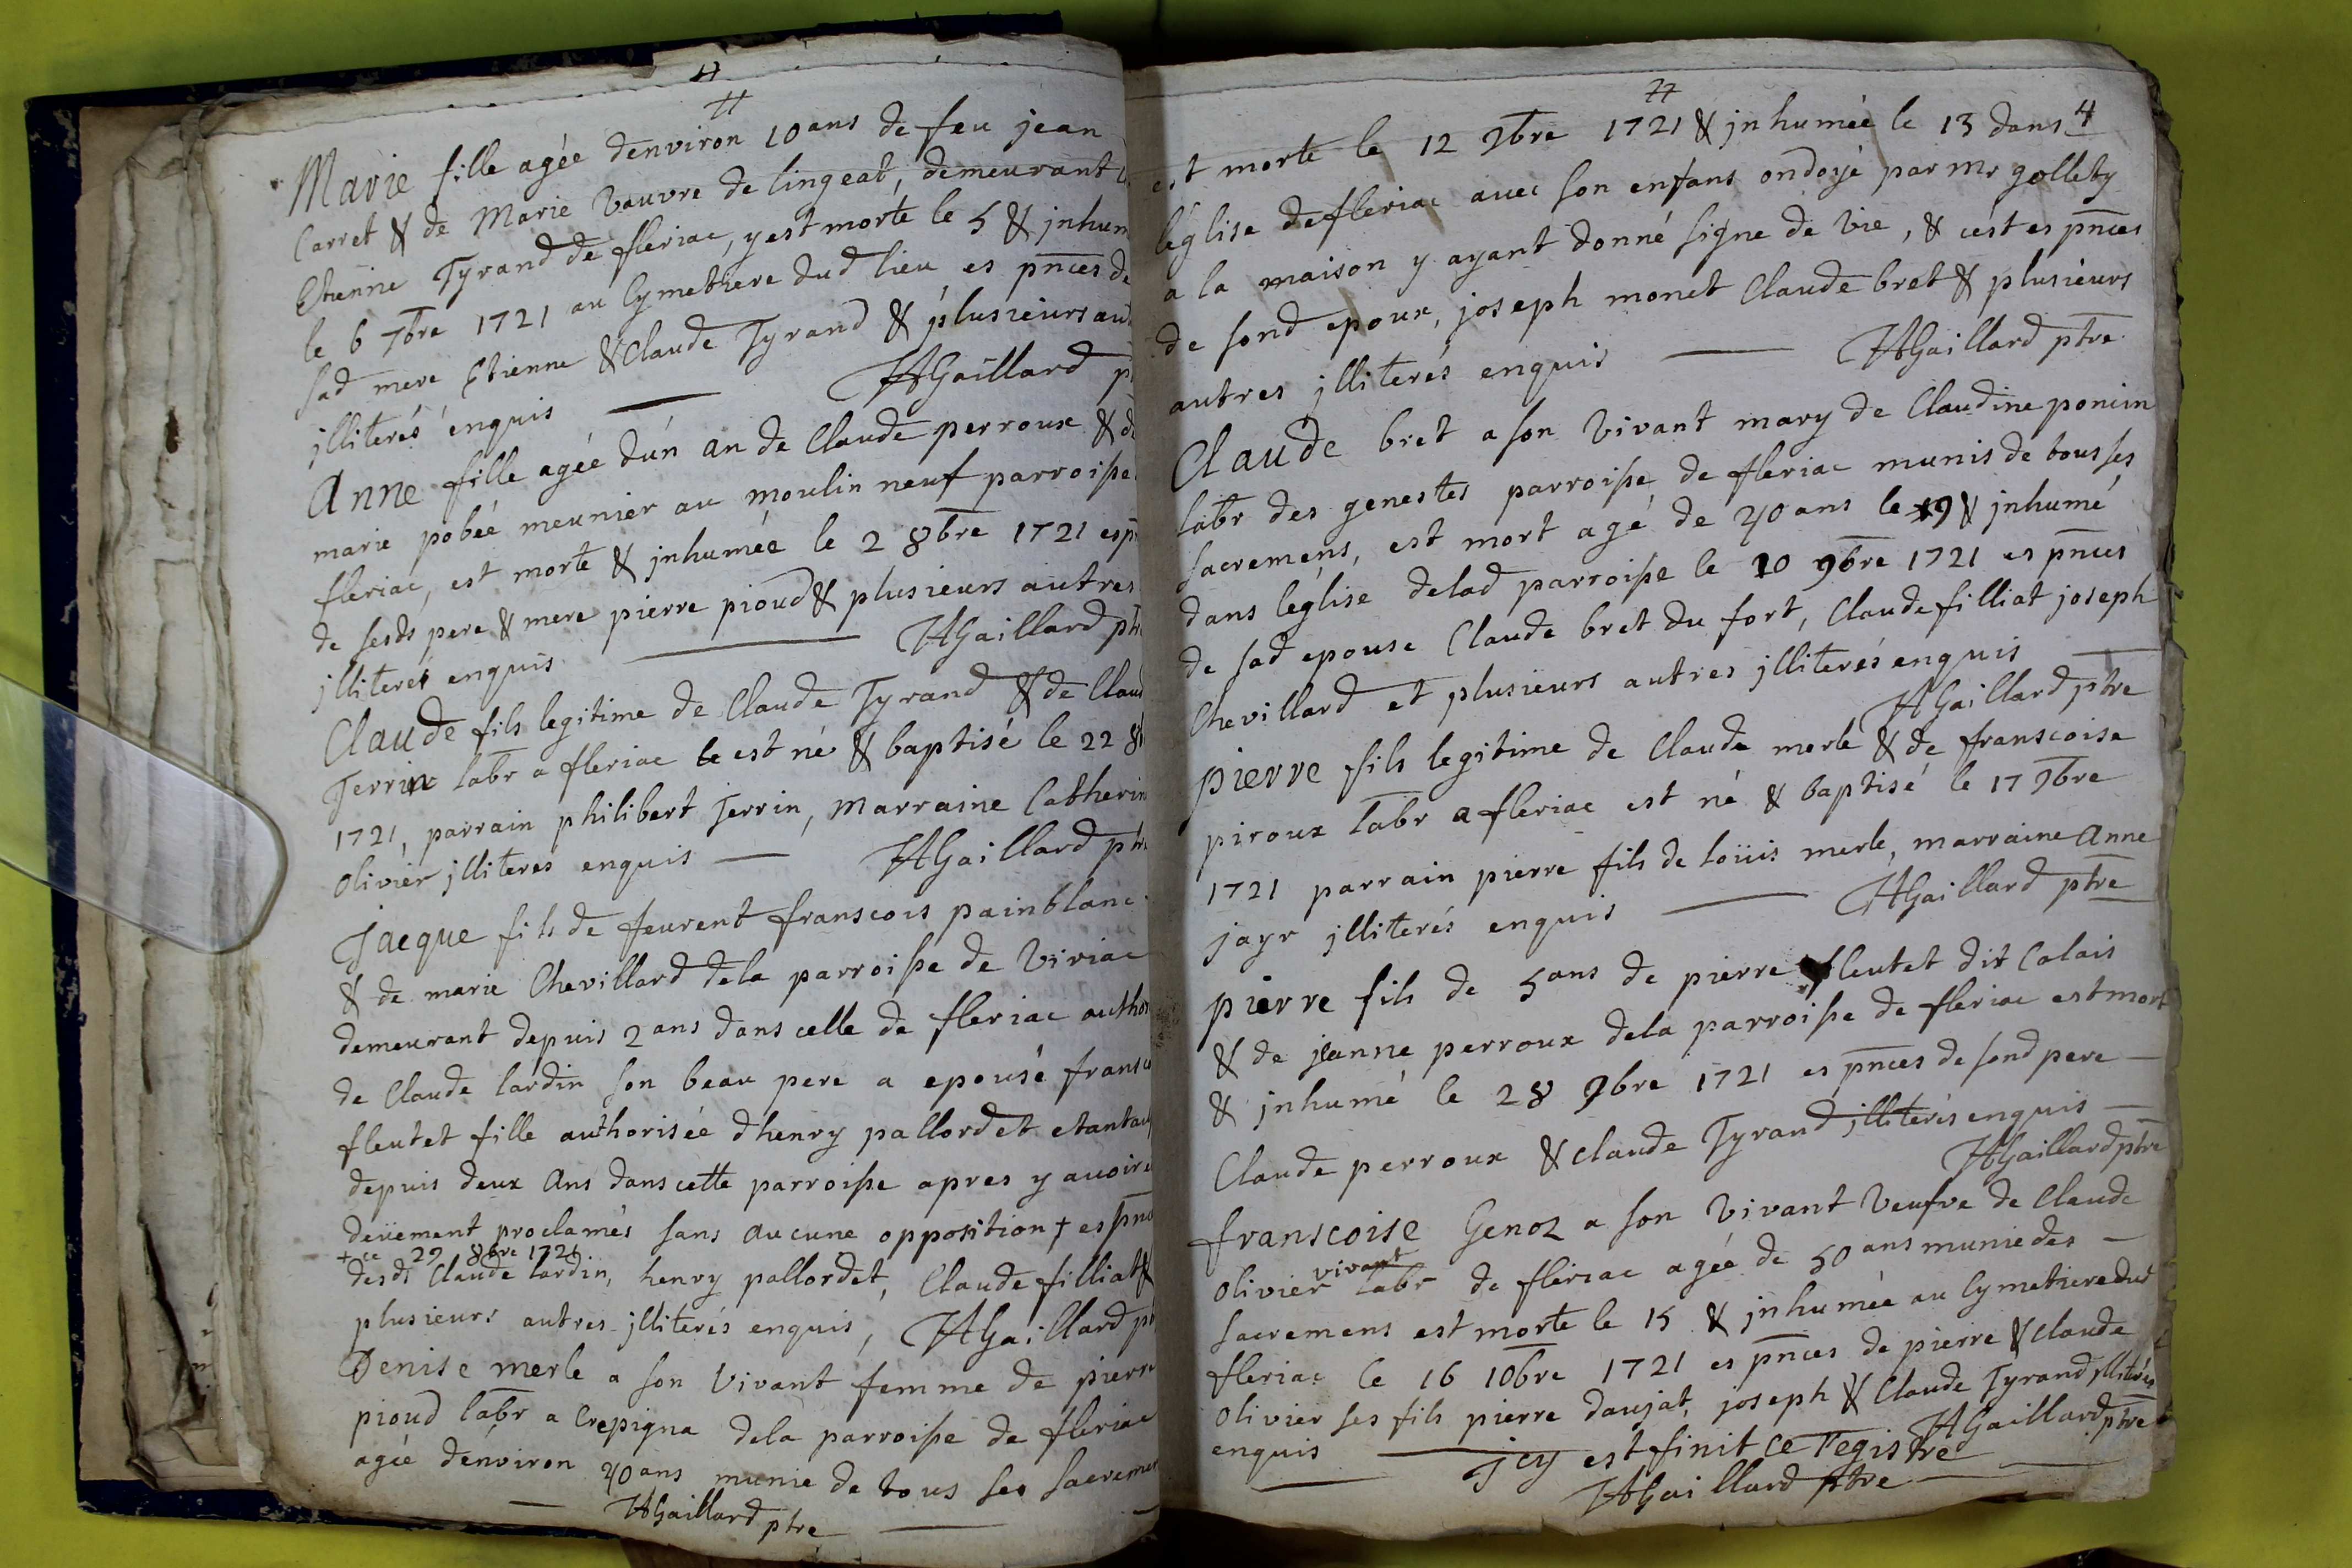 Marie fille agée denviron 10 ans de feu jean
Carret & de Marie Vauvre de lingeat, demeurant
Etienne Tyrand de fleriac, y est morte le 5 & jnhum
le 6 7bre 1721 au Cymethere dud lieu es pnces de
sad mere Etienne & Claude Tyrand & plusieurs au
jlliterés enquis HGaillard p
Anne fille agée dún an de Claude perroux & de
marie pobée meunier au moulin neuf parroisse
fleriac, est morte & jnhumée le 2 8bre 1721 es p
de sesds pere & mere pierre pioud & plusieurs autres
jlliterés enquis HGaillard ptr
Claude fils legitime de Claude Tyrand & de Clau
Terrin labr a fleriac est né & baptisé le 22 8b
1721, parrain philibert Terrin, Marraine Catherin
Olivier jlliteres enquis HGaillard ptr
Jacque fils de feu franscois painblanc
& de marie Chevillard dela parroisse de Viriac
demeurant depuis 2 ans dans celle de fleriac author
de Claude lardin son beau pere a epousé fransc
fleutet fille authorisée dhenry pallordet etant au
depuis deux Ans dans cette parroisse apres y avoir
deüement proclamés sans aucune opposition + es pn
+ ce 29 8bre 1721
desds Claude lardin, henry pallordet, Claude filliat &
plusieurs autres jlliterés enquis, HGaillard pt
Denise merle a son Vivant femme de pierr
pioud labr a Crepigna dela parroisse de fleriac
agée denviron 40 ans munie de tous ses sacremen
HGaillard ptre
77
4
est morte le 12 9bre 1721 & jnhumée le 13 dans
léglise de fleriac avec son enfans ondoyé par Mr gollety
a la maison y ayant donné signe de vie, & cést es pnces
de sond epoux, joseph monet Claude bret & plusieurs
autres jlliterés enquis HGaillard ptre
Claude bret a son Vivant mary de Claudine poncin
labr des genestes parroisse de fleriac munis de tous ses
sacremens, est mort agé de 40 ans le 19 & jnhumé
dans léglise delad parroisse le 20 9bre 1721 es pnces
de sad epouse Claude bret du fort, Claude filliat joseph
Chevillard et plusieurs autres jlliterés enquis
HGaillard ptre
pierre fils legitime de Claude merle & de franscoise
piroux labr a fleriac est né & baptisé le 17 9bre
1721 parrain pierre fils de loüis merle, marraine Anne
jayr jlliterés enquis HGaillard ptre
pierre fils de 5 ans de pierre fleutet dit Calais
& de jeanne perroux dela parroisse de fleriac est mort
& jnhumé le 28 9bre 1721 es pnces de sond pere
Claude perroux & Claude Tyrand jlliterés enquis
HGaillard ptre
franscoise Genoz a son Vivant Veufve de Claude
vivant
Olivier labr de fleriac agée de 50 ans munie des
sacremens est morte le 15 & jnhumée au Cymetiere dud
fleriac le 16 10bre 1721 es pnces de pierre & Claude
Olivier ses fils pierre daujat, joseph & Claude Tyrand jlliterés
enquis HGaillard ptre
jcy est finit ce registre
HGaillard ptre